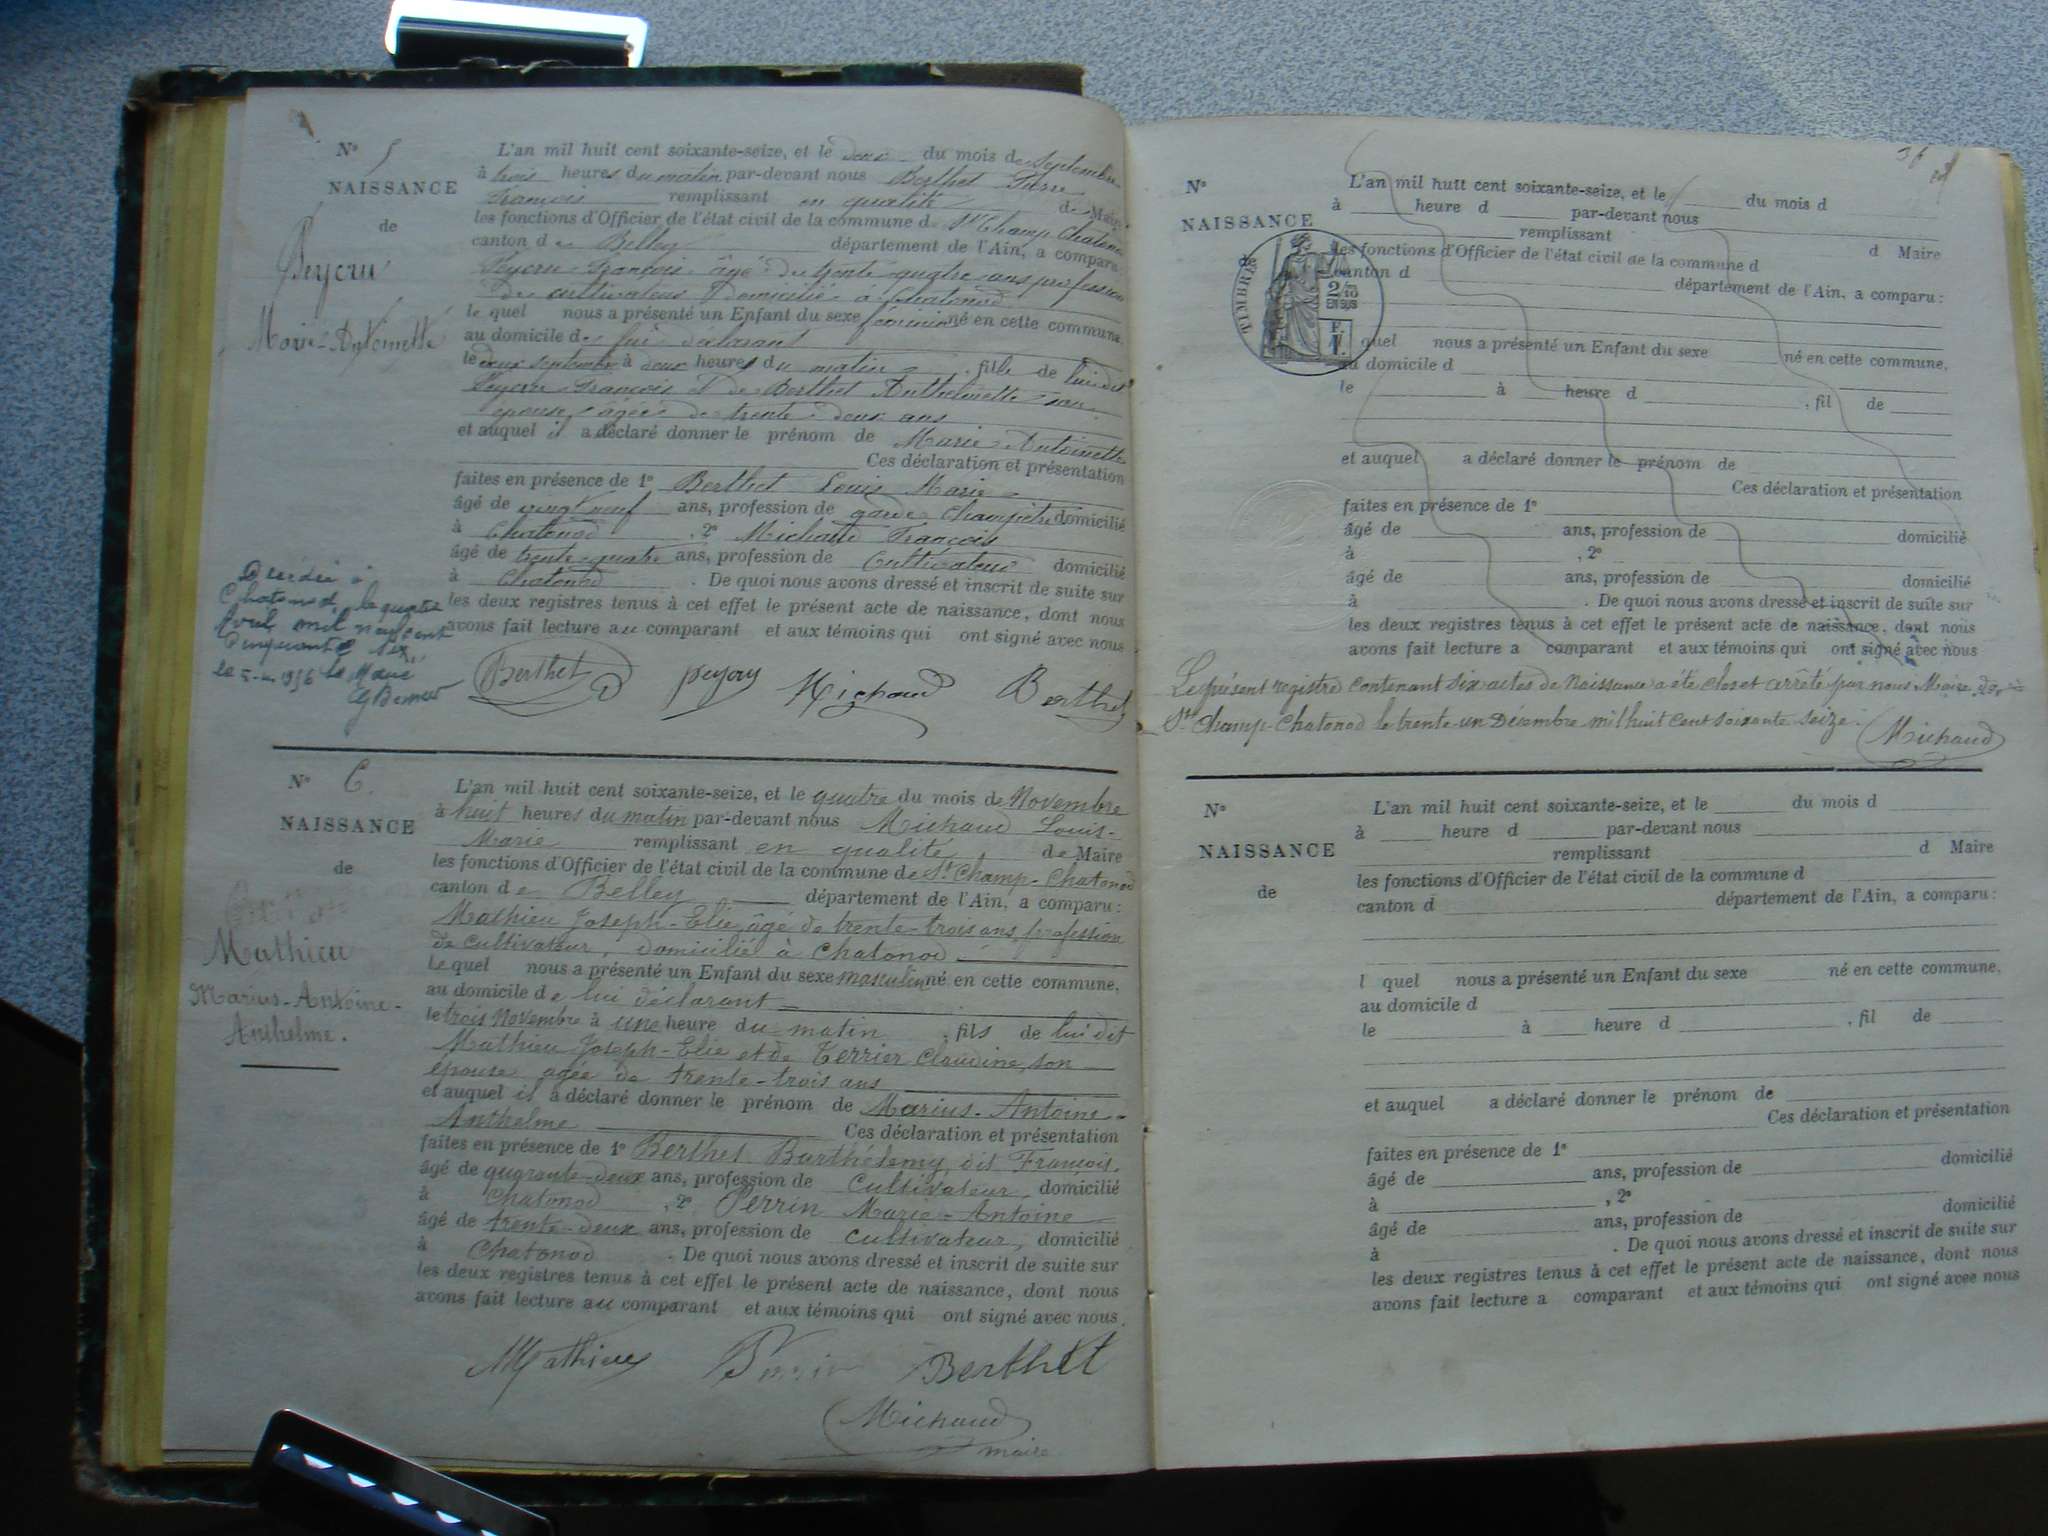 N° 5
NAISSANCE
de
Peycru
Marie-Antoinette
L'an mil huit cent soixante-seize, et le deux du mois de Septembre
à trois heures du matin par-devant nous Berthet Pierre
François remplissant en qualité de Maire
les fonctions d'Officier de l'état civil de la commune de St Champ Chatonod
canton de Belley département de l'Ain, a comparu:
Peycru François âgé de trente-quatre ans profession
de cultivateur domicilié à Chatonod
le quel nous a présenté un Enfant du sexe féminin né en cette commune,
au domicile de lui déclarant
le deux septembre à deux heures du matin, fille de lui dit
Peycru François et de Berthet Anthelmette son
épouse, âgée de trente-deux ans
et auquel il a déclaré donner le prénom de Marie-Antoinette
Ces déclaration et présentation
faites en présence de 1° Berthet Louis Marie
âgé de vingt neuf ans, profession de garde champêtre domicilié
à Chatonod, 2° Michaud François
âgé de trente-quatre ans, profession de Cultivateur domicilié
à Chatonod. De quoi nous avons dressé et inscrit de suite sur
les deux registres tenus à cet effet le présent acte de naissance, dont nous
avons fait lecture au comparant et aux témoins qui ont signé avec nous
Décédée à
Chatonod, le quatre
Avril mil neuf cent
cinquante six,
le 5-4-1956 le Maire
Berthet Michaud Berthet
N° 6.
NAISSANCE
de
Mathieu
Marius-Antoine-
Anthelme.
L'an mil huit cent soixante-seize, et le quatre du mois de Novembre
à huit heures du matin par-devant nous Michaud Louis-
Marie remplissant en qualité de Maire
les fonctions d'Officier de l'état civil de la commune de St Champ-Chatonod
canton de Belley département de l'Ain, a comparu:
Mathieu Joseph-Elie, âgé de trente-trois ans, profession
de cultivateur, domicilié à Chatonod.
Le quel nous a présenté un Enfant du sexe masculin né en cette commune,
au domicile de lui déclarant
le trois Novembre à une heure du matin, fils de lui dit
Mathieu Joseph-Elie et de Terrier Claudine, son
épouse agée de trente-trois ans
et auquel il a déclaré donner le prénom de Marius-Antoine-
Anthelme Ces déclaration et présentation
faites en présence de 1° Berthet Barthélemy, dit François,
âgé de quarante-deux ans, profession de Cultivateur, domicilié
à Chatonod, 2° Perrin Marie-Antoine
âgé de trente-deux ans, profession de cultivateur, domicilié
à Chatonod. De quoi nous avons dressé et inscrit de suite sur
les deux registres tenus à cet effet le présent acte de naissance, dont nous
avons fait lecture au comparant et aux témoins qui ont signé avec nous.
Mathieu Perrin Berthet
Michaud
maire
N°
NAISSANCE
TIMBRES
2/10
EN SUS
L'an mil huit cent soixante-seize, et le du mois d
à heure d par-devant nous
remplissant d Maire
les fonctions d'Officier de l'état civil de la commune d
canton d département de l'Ain, a comparu:
quel nous a présenté un Enfant du sexe né en cette commune,
au domicile d
le à heure d, fil de
et auquel a déclaré donner le prénom de
Ces déclaration et présentation
faites en présence de 1°
âgé de ans, profession de domicilié
à, 2°
âgé de ans, profession de domicilié
à. De quoi nous avons dressé et inscrit de suite sur
les deux registres tenus à cet effet le présent acte de naissance, dont nous
avons fait lecture a comparant et aux témoins qui ont signé avec nous
Le présent registre contenant six actes de Naissance a été clos et arrêté par nous Maire de
St Champ-Chatonod le trente un Décembre mil huit cent soixante seize.
Michaud
N°
NAISSANCE
de
L'an mil huit cent soixante-seize, et le du mois d
à heure d par-devant nous
remplissant d Maire
les fonctions d'Officier de l'état civil de la commune d
canton d département de l'Ain, a comparu:
l quel nous a présenté un Enfant du sexe né en cette commune,
au domicile d
le à heure d, fil de
et auquel a déclaré donner le prénom de
Ces déclaration et présentation
faites en présence de 1°
âgé de ans, profession de domicilié
à, 2°
âgé de ans, profession de domicilié
à. De quoi nous avons dressé et inscrit de suite sur
les deux registres tenus à cet effet le présent acte de naissance, dont nous
avons fait lecture a comparant et aux témoins qui ont signé avec nous